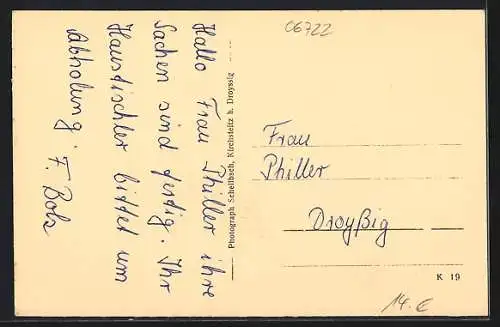 06722
Hallo Frau Philler ihre
Sachen sind fertig. Ihr
Haustischler bittet um
Abholung F. Bolz
Photograph Schellbach, Kirchsteitz b. Droyssig
Frau
Philler
Droyßig
K 19
14.€